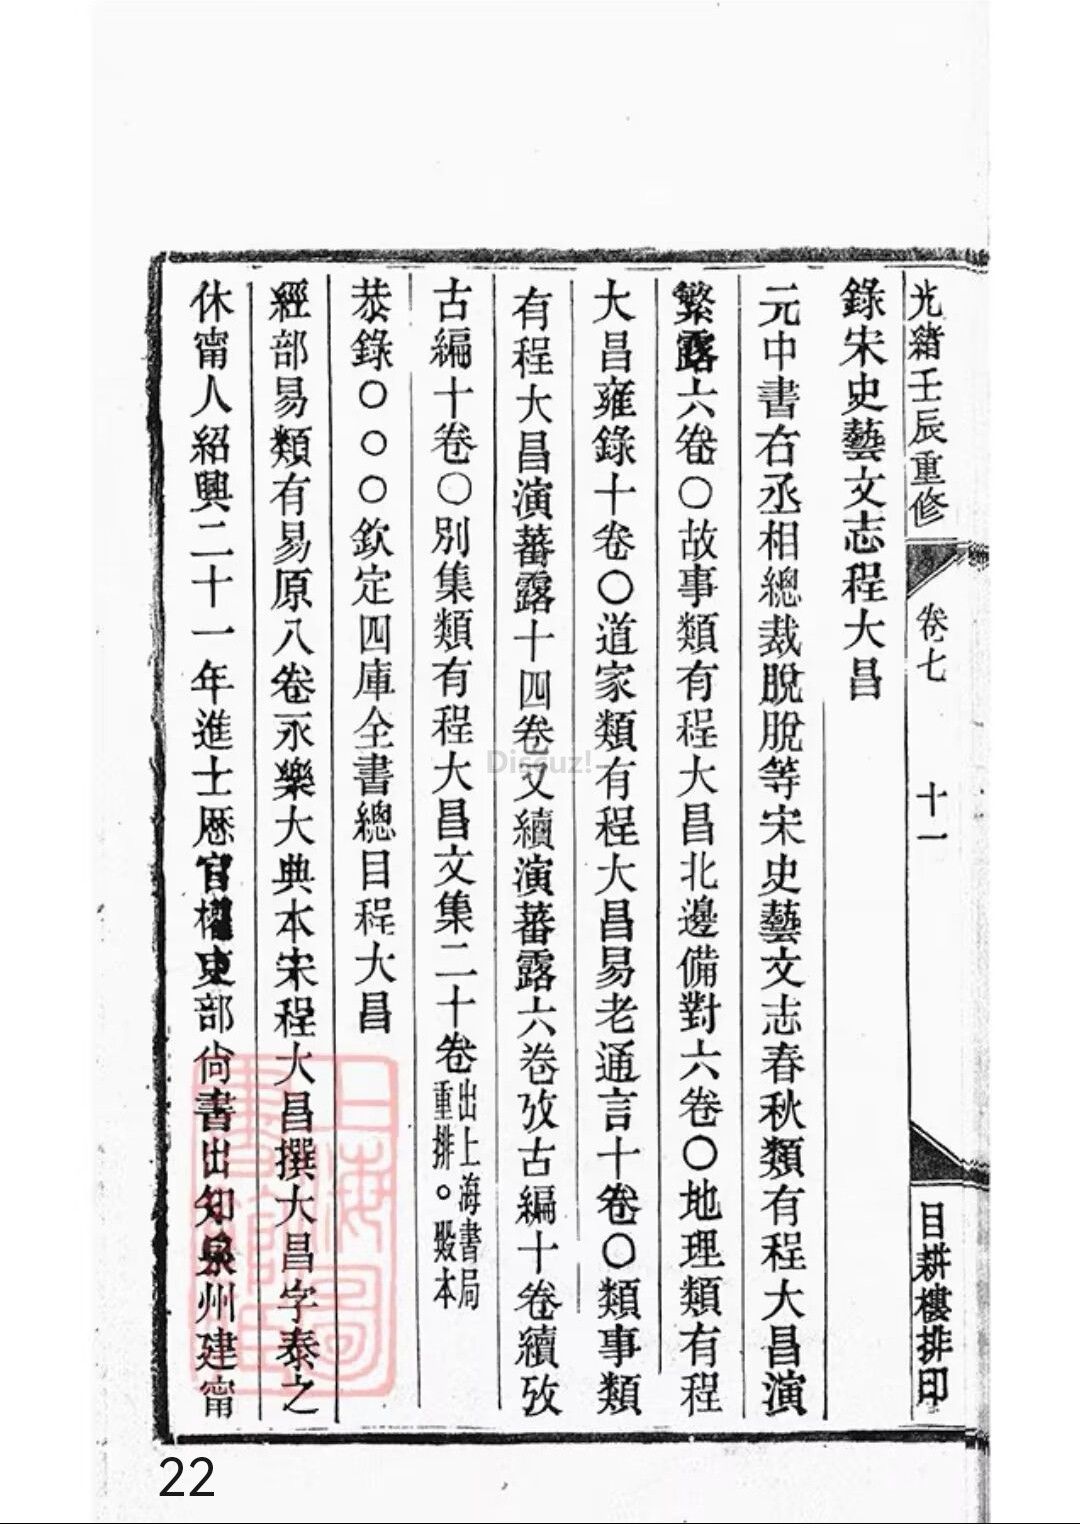 光緒壬辰重修
卷七
十一
目耕樓排印
錄宋史藝文志程大昌
元中書右丞相總裁脫脫等宋史藝文志春秋類有程大昌演
繁露六卷〇故事類有程大昌北邊備對六卷〇地理類有程
大昌雍錄十卷〇道家類有程大昌易老通言十卷〇類事類
有程大昌演蕃露十四卷又續演蕃露六卷攷古編十卷續攷
古編十卷〇別集類有程大昌文集二十卷
出上海書局
重排。殿本
恭錄〇〇〇欽定四庫全書總目程大昌
經部易類有易原八卷永樂大典本宋程大昌撰大昌字泰之
休甯人紹興二十一年進士歷官權吏部尙書出知泉州建甯
上海圖書館藏
Discuz!
22